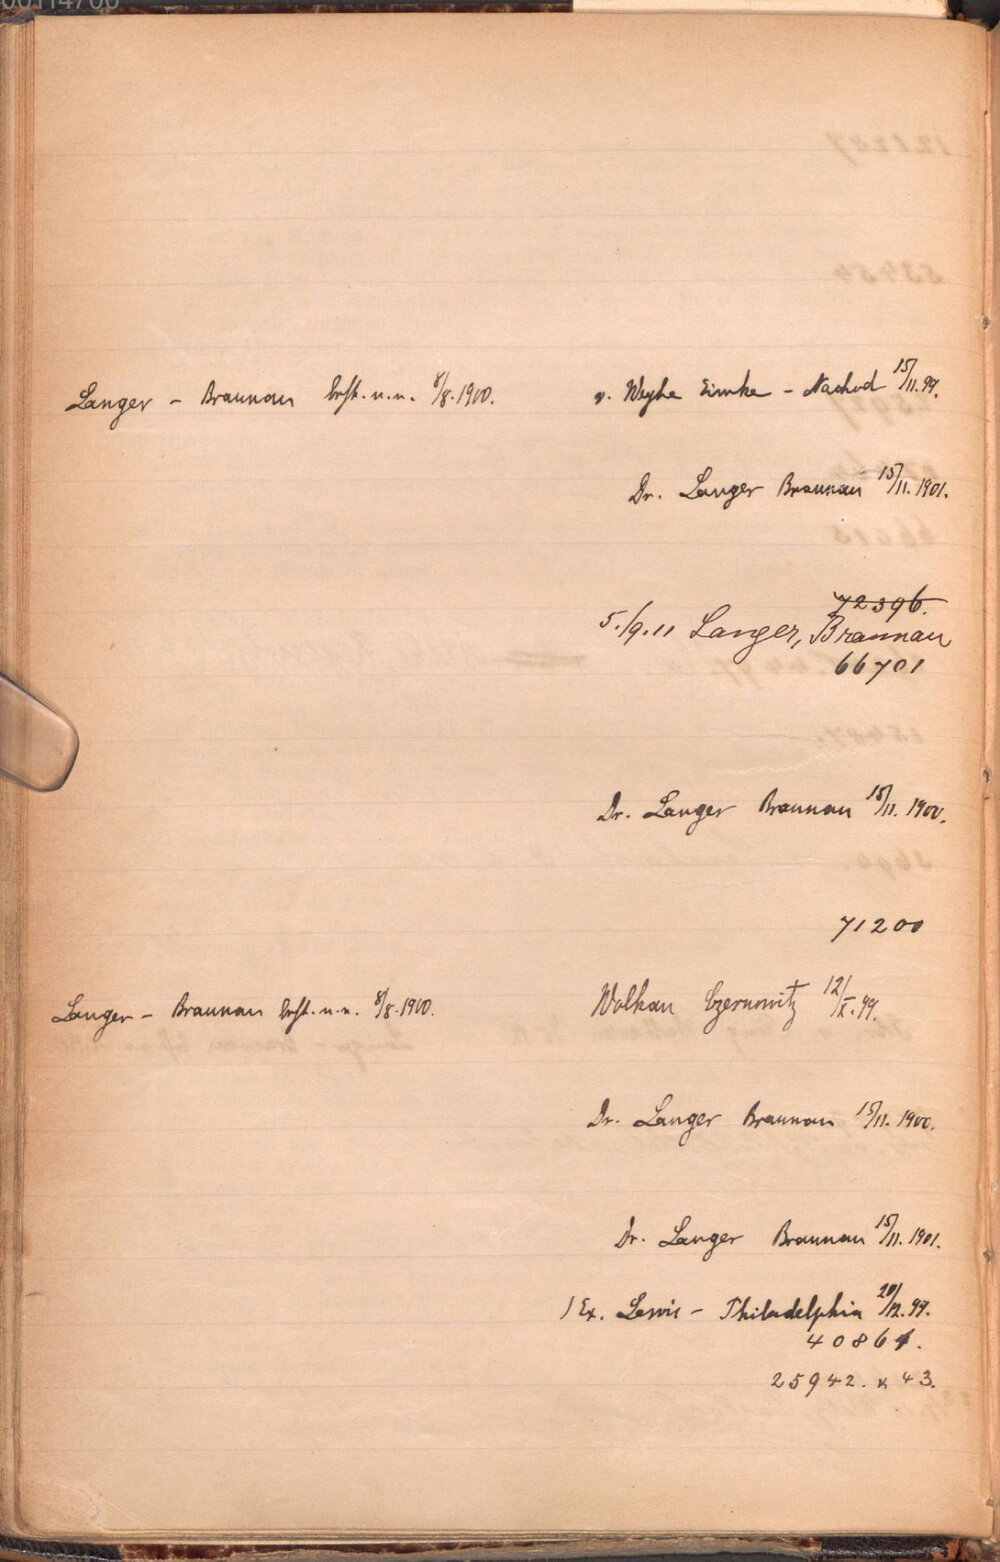 Langer - Braunau 8/8.1900.
v. Weyhe Eimke - Nachod 15/11.99.
Dr. Langer Braunau 15/11.1901.
72396.
5./9.11 Langer, Braunau
66701
Dr. Langer Braunau 15/11.1900.
71200
Langer - Braunau 8/8.1900.
Wolkan Czernowitz 12/X.99.
Dr. Langer Braunau 15/11.1900.
Dr. Langer Braunau 15/11.1901.
1 Ex. Lewis - Philadelphia 20/12.99.
40861.
25942. x 43.